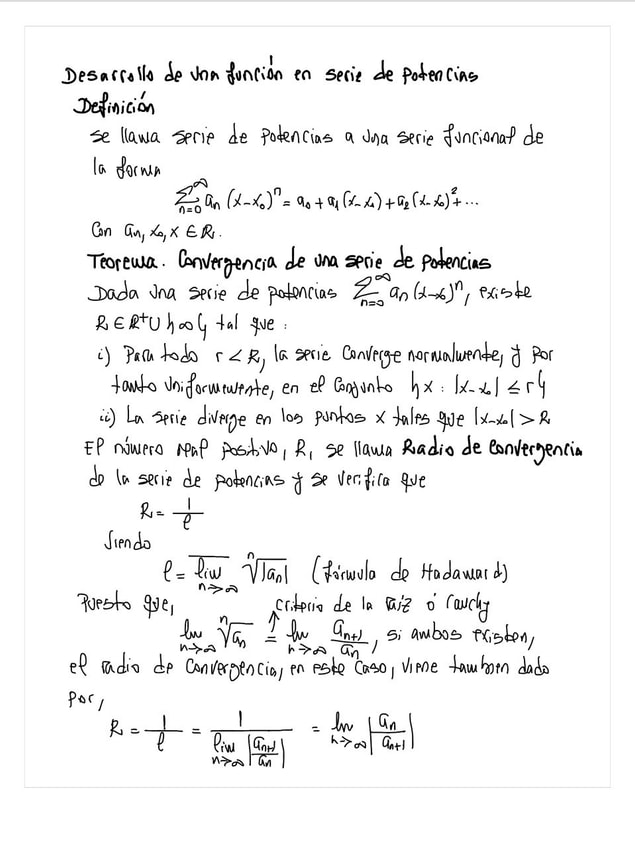 Desarrollo de una función en serie de potencias
Definición
se llama serie de potencias a una serie funcional de
la forma
∑_{n=0}^{∞} aₙ (x-x₀)ⁿ = a₀ + a₁ (x-x₀) + a₂ (x-x₀)² + ...
Con aₙ, x₀, x ∈ ℝ.
Teorema. Convergencia de una serie de potencias
Dada una serie de potencias ∑_{n=0}^{∞} aₙ (x-x₀)ⁿ, existe
R ∈ ℝ⁺ ∪ {∞} tal que :
i) Para todo r < R, la serie converge normalmente, y por
tanto uniformemente, en el conjunto {x : |x-x₀| ≤ r}
ii) La serie diverge en los puntos x tales que |x-x₀| > R
El número real positivo, R, se llama Radio de convergencia
de la serie de potencias y se verifica que
R = 1/ℓ
Siendo
ℓ = \overline{lim}_{n→∞} ⁿ√|aₙ| (fórmula de Hadamard)
Puesto que, criterio de la raíz ó Cauchy
lim_{n→∞} ⁿ√aₙ = lim_{n→∞} aₙ₊₁/aₙ, si ambos existen,
el radio de convergencia, en este caso, viene tambien dado
por,
R = 1/ℓ = 1/(lim_{n→∞} |aₙ₊₁/aₙ|) = lim_{n→∞} |aₙ/aₙ₊₁|